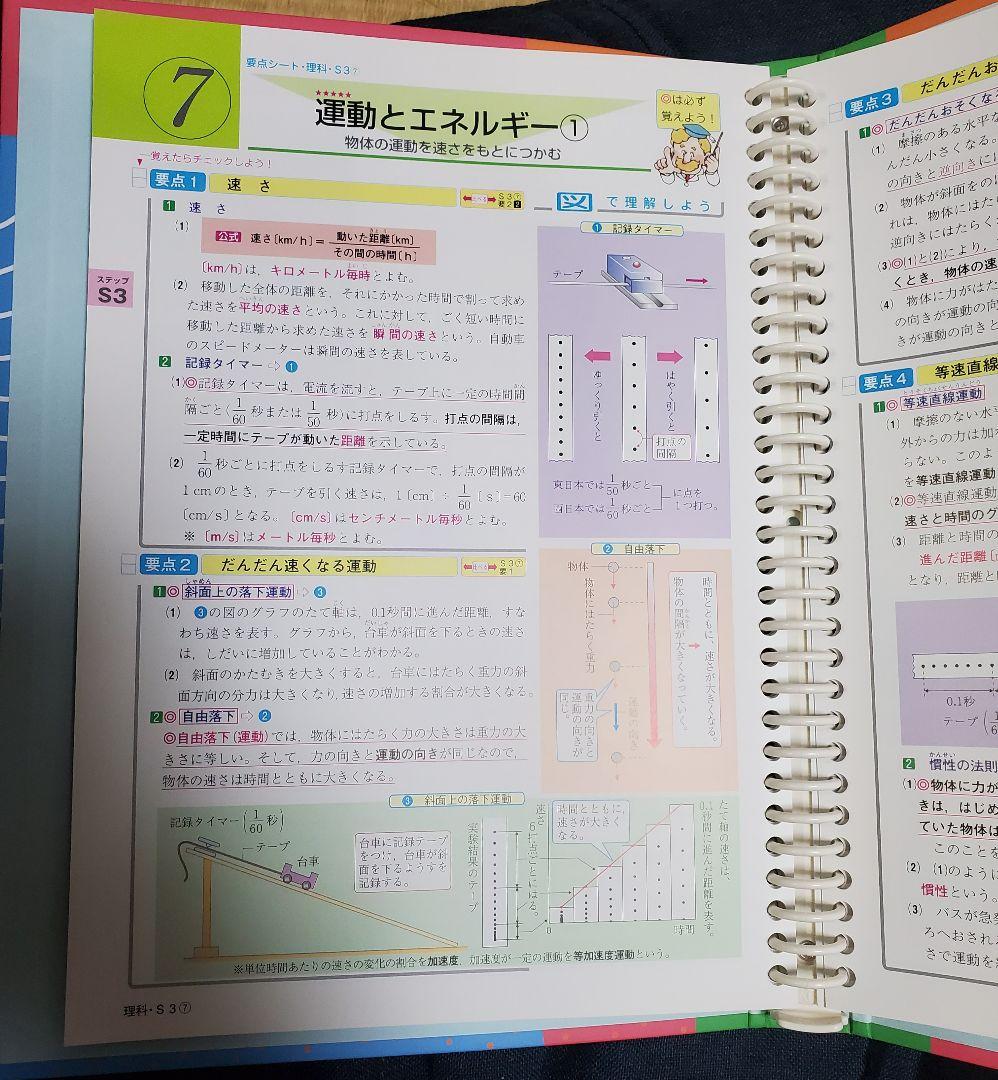 7
要点シート・理科・S3⑦
★★★★★
運動とエネルギー①
物体の運動を速さをもとにつかむ
◎は必ず
覚えよう!
覚えたらチェックしよう!
ステップ
S3
要点1 速さ
比べる S3⑦
要2 2
1 速さ
(1) 公式 速さ〔km/h〕= 動いた距離〔km〕/その間の時間〔h〕
〔km/h〕は,キロメートル毎時とよむ。
(2) 移動した全体の距離を,それにかかった時間で割って求め
た速さを平均の速さという。これに対して,ごく短い時間に
移動した距離から求めた速さを瞬間の速さという。自動車
のスピードメーターは瞬間の速さを表している。
2 記録タイマー⇨❶
(1)◎記録タイマーは,電流を流すと,テープ上に一定の時間間
隔ごと(1/60秒または1/50秒)に打点をしるす。打点の間隔は,
一定時間にテープが動いた距離を示している。
(2) 1/60秒ごとに打点をしるす記録タイマーで,打点の間隔が
1cmのとき,テープを引く速さは,1〔cm〕÷1/60〔s〕=60
〔cm/s〕となる。〔cm/s〕はセンチメートル毎秒とよむ。
※〔m/s〕はメートル毎秒とよむ。
図で理解しよう
❶ 記録タイマー
テープ
ゆっくり引くと
はやく引くと
打点の
間隔
東日本では1/50秒ごと
西日本では1/60秒ごと
に点を
1つ打つ。
要点2 だんだん速くなる運動
比べる S3⑦
要1
1◎斜面上の落下運動⇨❸
(1) ❸の図のグラフのたて軸は,0.1秒間に進んだ距離,すな
わち速さを表す。グラフから,台車が斜面を下るときの速さ
は,しだいに増加していることがわかる。
(2) 斜面のかたむきを大きくすると,台車にはたらく重力の斜
面方向の分力は大きくなり,速さの増加する割合が大きくなる。
2◎自由落下⇨❷
◎自由落下(運動)では,物体にはたらく力の大きさは重力の大
きさに等しい。そして,力の向きと運動の向きが同じなので,
物体の速さは時間とともに大きくなる。
❷ 自由落下
物体
物体にはたらく重力
重力の向きと
運動の向きが
同じ。
運動の向き
時間とともに,速さが大きくなる。
物体の間隔が大きくなっていく。
❸ 斜面上の落下運動
記録タイマー(1/60秒)
テープ
台車
台車に記録テープ
をつけ,台車が斜
面を下るようすを
記録する。
実験結果のテープ
6打点ごとにはる。
速さ
時間とともに,
速さが大きく
なる。
0
時間
たて軸の速さは,
0.1秒間に進んだ距離を表す。
※単位時間あたりの速さの変化の割合を加速度,加速度が一定の運動を等加速度運動という。
理科・S3⑦
要点3 だんだんお
1◎だんだんおそくな
(1) 摩擦のある水平な
んだん小さくなる。
の向きと逆向きに
(2) 物体が斜面をのぼ
れは,物体にはた
逆向きにはたらく
(3)◎(1)と(2)により,
くとき,物体の速
(4) 物体に力がはた
の向きが運動の向
きが運動の向きと
要点4 等速直線
1◎等速直線運動
(1) 摩擦のない水平
外からの力は加
らない。このよ
を等速直線運動
(2)◎等速直線運動
速さと時間のグ
(3) 距離と時間の
進んだ距離〔
となり,距離と
0.1秒
テープ
2 慣性の法則
(1)◎物体に力が
きは,はじめ
ていた物体は
このことを
(2) (1)のように
慣性という。
(3) バスが急発
ろへおされ
さで運動を